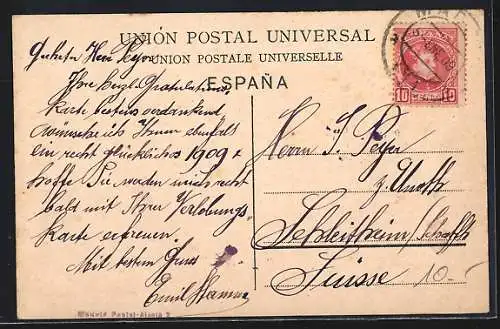 UNIÓN POSTAL UNIVERSAL
UNION POSTALE UNIVERSELLE
ESPAÑA
Geehrter Herr Peyer
Ihre Gratulations
Karte bestens verdankend
wünsche ich Ihnen ebenfalls
ein recht glückliches 1909 +
hoffe Sie werden mich recht
bald mit Ihrer Verlobungs
Karte erfreuen.
Mit bestem Gruss
Emil
MAD
10 10
Herrn J. Peyer
z.
Schleitheim/Schaffh
Suisse 10.-
Madrid Postal-